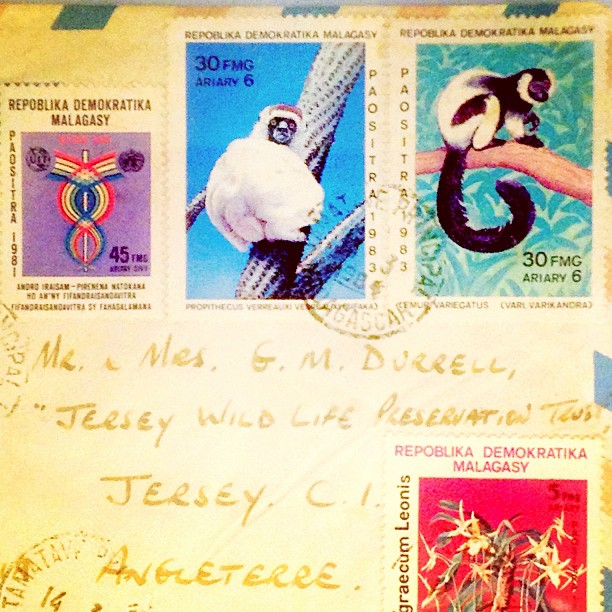 REPOBLIKA DEMOKRATIKA
MALAGASY
PAOSITRA 1981
45 FMG
ANDRO IRAISAM-PIRENENA NATOKANA
HO AN'NY FIFANDRAISANDAVITRA
FIFANDRAISANDAVITRA SY FAHASALAMANA
REPOBLIKA DEMOKRATIKA MALAGASY
30 FMG
ARIARY 6
PAOSITRA 1983
PROPITHECUS VERREAUXI
REPOBLIKA DEMOKRATIKA MALAGASY
PAOSITRA 1983
30 FMG
ARIARY 6
LEMUR VARIEGATUS (VARI, VARIKANDRA)
Mr. & Mrs. G. M. DURRELL,
"JERSEY WILD LIFE PRESERVATION TRUST,
JERSEY. C.I.
ANGLETERRE.
REPOBLIKA DEMOKRATIKA
MALAGASY
5 FMG
graecum Leonis